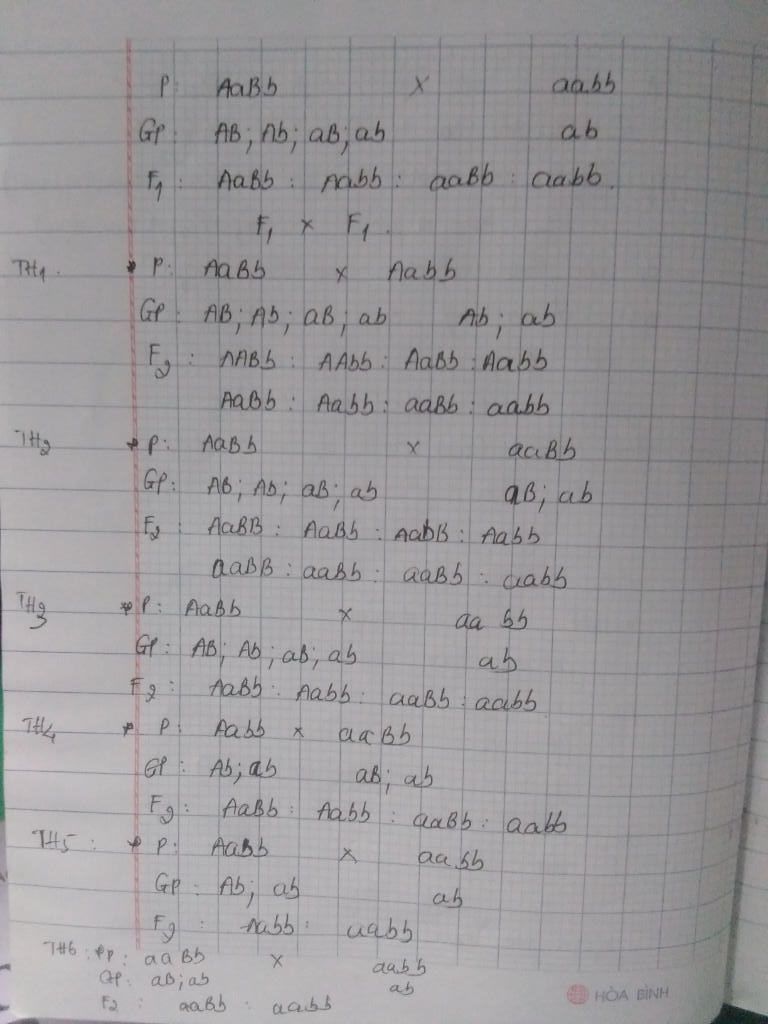 P: AaBb x aabb
GP: AB; Ab; aB; ab ab
F1: AaBb : Aabb : aaBb : aabb.
F1 x F1.
TH1. * P: AaBb x Aabb
GP: AB; Ab; aB; ab Ab; ab
F2: AABb : AAbb : AaBb : Aabb
AaBb : Aabb : aaBb : aabb
TH2 * P: AaBb x aaBb
GP: AB; Ab; aB; ab aB; ab
F2: AaBB : AaBb : AabB : Aabb
aaBB : aaBb : aaBb : aabb
TH3 * P: AaBb x aa bb
GP: AB; Ab; aB; ab ab
F2: AaBb : Aabb : aaBb : aabb
TH4 * P: Aabb x aaBb
GP: Ab; ab aB; ab
F2: AaBb : Aabb : aaBb : aabb
TH5: * P: Aabb x aabb
GP: Ab; ab ab
F2: Aabb : aabb
TH6: * P: aaBb x aabb
GP: aB; ab ab
F2: aaBb : aabb
HÒA BÌNH